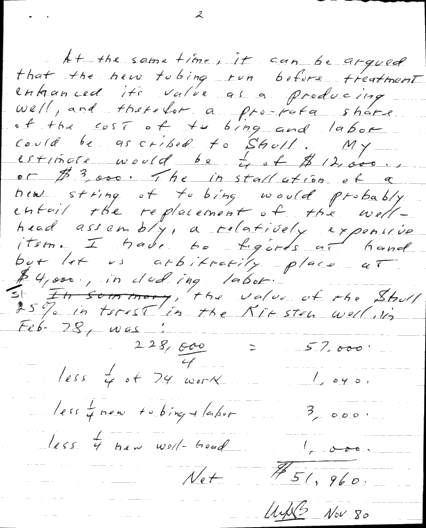 2
At the same time, it can be argued
that the new tubing run before treatment
enhanced its value as a producing
well, and therefor a pro-rata share
of the cost of tubing and labor
could be ascribed to Shull. My
estimate would be 1/4 of $12,000.,
or $3,000. The installation of a
new string of tubing would probably
entail the replacement of the well-
head assembly, a relatively expensive
item. I have no figures at hand
but let us arbitrarily place at
$4,000., including labor.
In summary, the value of the Shull
25% interest in the Kirsten well, in
Feb. 78, was :
228,000/4 = 57,000.
less 1/4 of 74 work 1,040.
less 1/4 new tubing + labor 3,000.
less 1/4 new well-head 1,000.
Net $51,960.
Nov 80